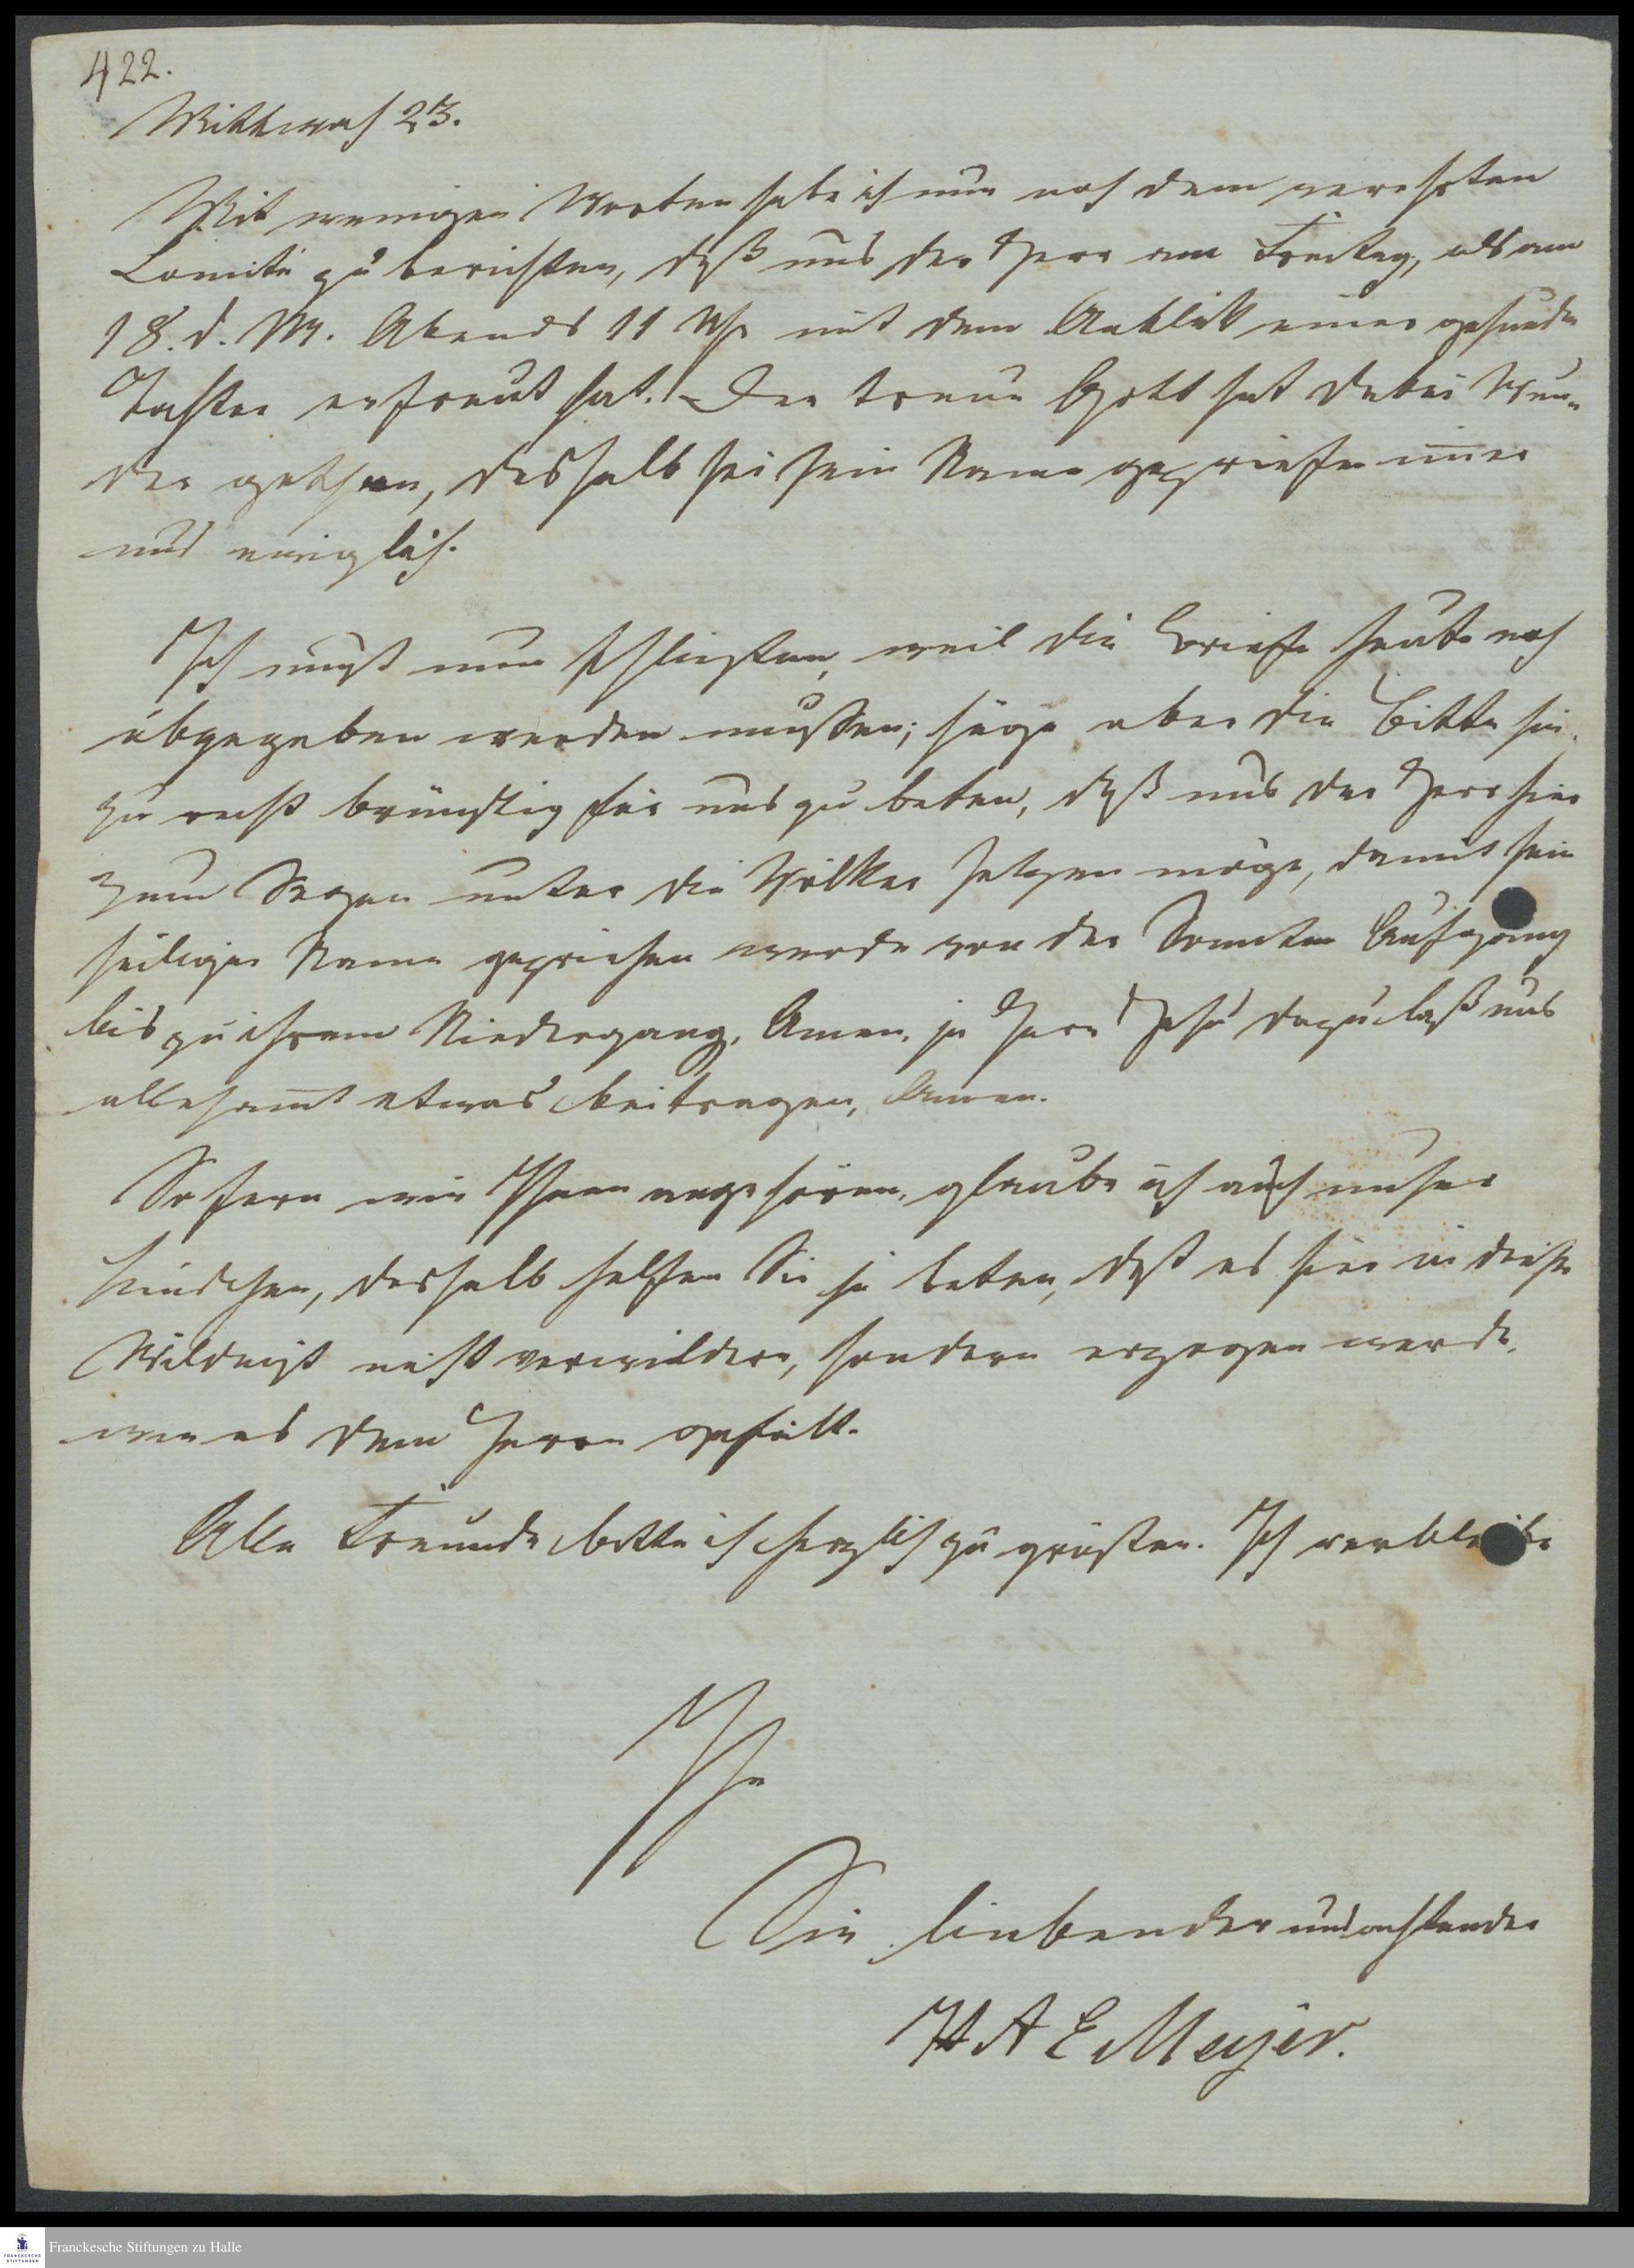 422.
Mittwoch 23.
Mit wenigen Worten habe ich nun noch dem verehrten
Comité zu berichten, daß uns der Herr am Freitag, als am
18. d. M. Abends 11 Uhr mit dem Anblick einer gesunden
Tochter erfreut hat. Der treue Gott hat dabei Wun-
der gethan, deshalb sei sein Name gepriesen im̄er
und ewiglich.
Ich muß nun schließen, weil die Briefe heute noch
abgegeben werden mußen; füge aber die Bitte hin-
zu recht brünstig für uns zu beten, daß uns der Herr hier
zum Segen unter die Völker setzen möge, damit sein
heiliger Name gepriesen werde von der Sonnen Aufgang
bis zu ihrem Niedergang, Amen, ja Herr Jesu dazu laß uns
allesam̄t etwas beitragen, Amen.
So fern wir Ihnen angehören, glaube ich auch unser
Kindchen, deshalb helfen Sie ja beten, daß es hier in dieser
Wildniß nicht verwildere, sondern erzogen werde,
wie es dem Herrn gefällt.
Alle Freunde bitte ich herzlich zu grüßen. Ich verbleibe
Ihr
Sie liebender und achtender
H A E Meyer.
Franckesche Stiftungen zu Halle